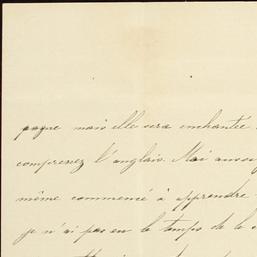 pagne mais elle sera enchantée
comprenez l'anglais. Moi aussi
même commencé à apprendre
je n'ai pas eu le temps de le